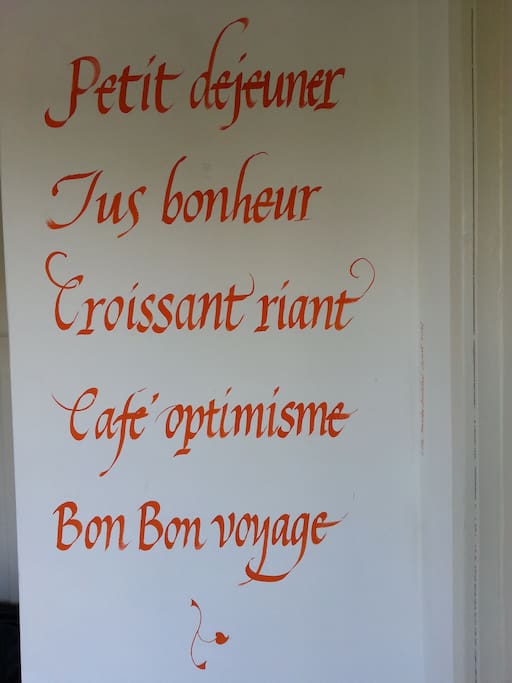 Petit dejeuner
Jus bonheur
Croissant riant
Café optimisme
Bon Bon voyage